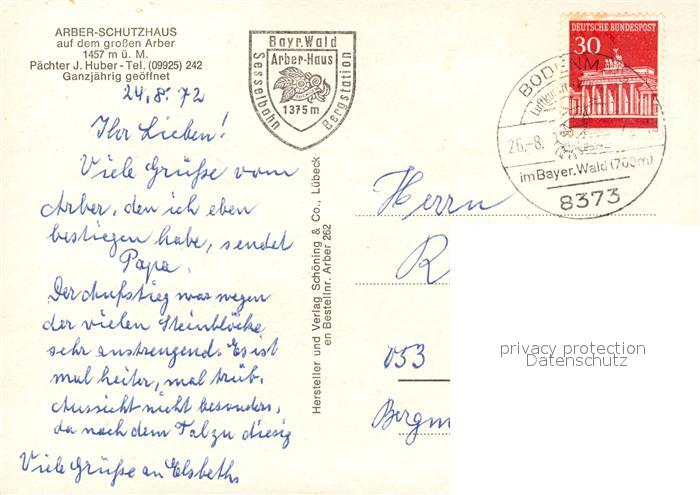 ARBER-SCHUTZHAUS
auf dem großen Arber
1457 m ü. M.
Pächter J. Huber - Tel. (09925) 242
Ganzjährig geöffnet
24.8.72
Ihr Lieben!
Viele Grüße vom
Arber, den ich eben
bestiegen habe, sendet
Papa.
Der Aufstieg war wegen
der vielen Steinblöcke
sehr anstrengend. Es ist
mal heiter, mal trüb.
Aussicht nicht besonders,
da nach dem Tal zu diesig
Viele Grüße an Elsbeths
Bayr. Wald
Arber-Haus
1375 m
Sesselbahn
Bergstation
Hersteller und Verlag Schöning & Co., Lübeck
en Bestellnr. Arber 262
DEUTSCHE BUNDESPOST
30
BODENM
26.-8.
im Bayer. Wald (700m)
8373
Herrn
R
053
Bergm
privacy protection
Datenschutz